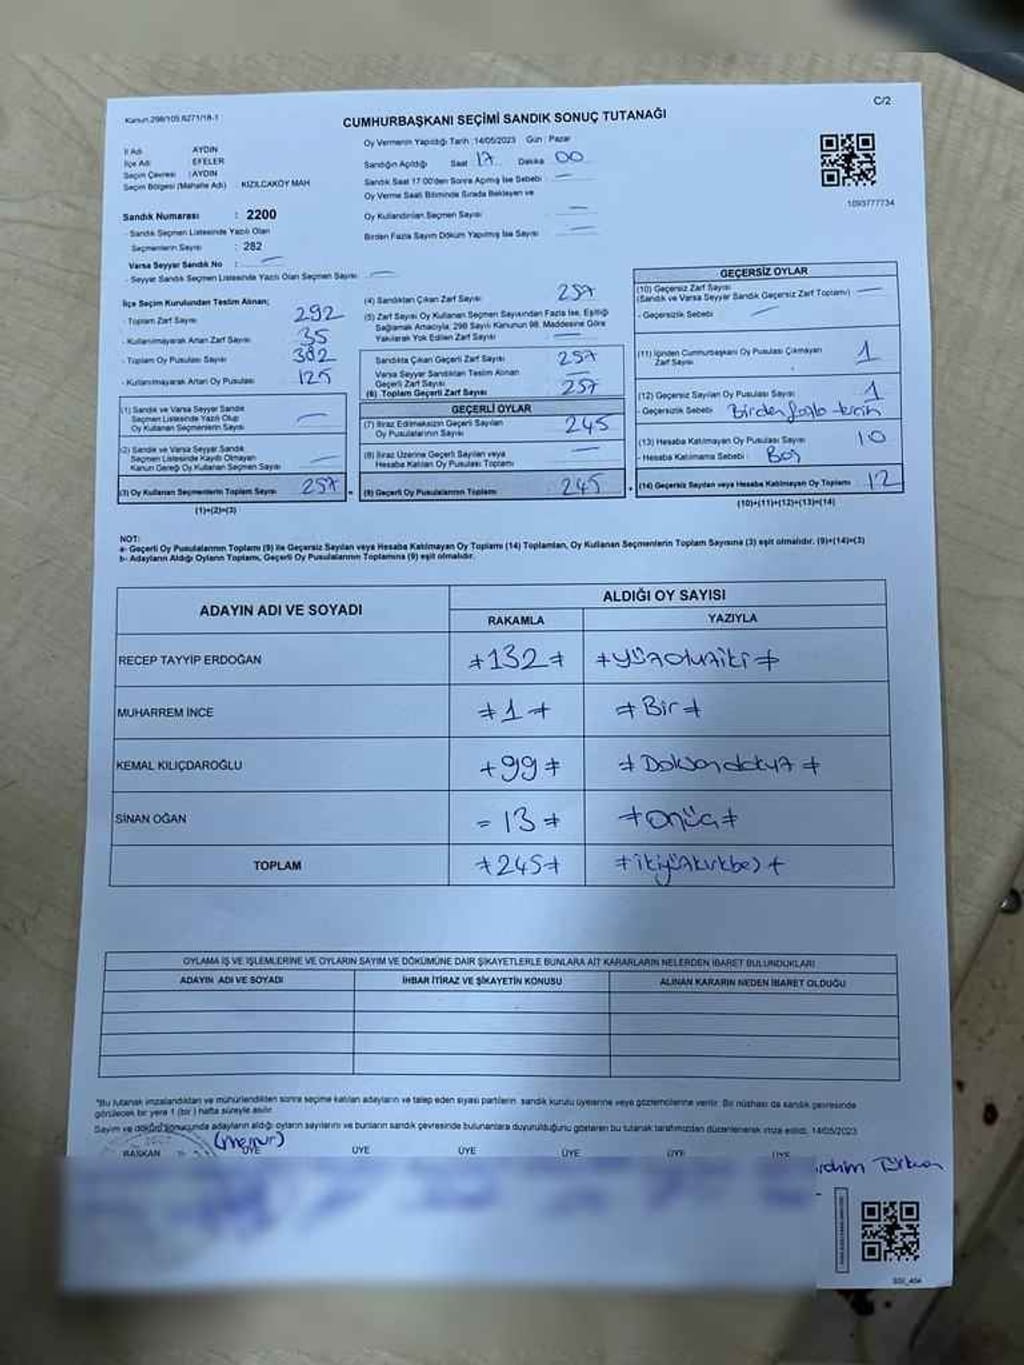 C/2
Kanun:298/105,6271/18-1
CUMHURBAŞKANI SEÇİMİ SANDIK SONUÇ TUTANAĞI
İl Adı AYDIN
İlçe Adı EFELER
Seçim Çevresi : AYDIN
Seçim Bölgesi (Mahalle Adı) : KIZILCAKÖY MAH
Sandık Numarası : 2200
- Sandık Seçmen Listesinde Yazılı Olan
Seçmenlerin Sayısı : 282
Varsa Seyyar Sandık No : —
- Seyyar Sandık Seçmen Listesinde Yazılı Olan Seçmen Sayısı : —
Oy Vermenin Yapıldığı Tarih : 14/05/2023 Gün : Pazar
Sandığın Açıldığı Saat 17 Dakika 00
Sandık Saat 17:00'den Sonra Açılmış İse Sebebi : —
Oy Verme Saati Bitiminde Sırada Bekleyen ve
Oy Kullandırılan Seçmen Sayısı : —
Birden Fazla Sayım Döküm Yapılmış İse Sayısı : —
1093777734
İlçe Seçim Kurulundan Teslim Alınan;
- Toplam Zarf Sayısı 292
- Kullanılmayarak Artan Zarf Sayısı 35
- Toplam Oy Pusulası Sayısı 382
- Kullanılmayarak Artan Oy Pusulası 125
(1) Sandık ve Varsa Seyyar Sandık
Seçmen Listesinde Yazılı Olup
Oy Kullanan Seçmenlerin Sayısı —
(2) Sandık ve Varsa Seyyar Sandık
Seçmen Listesinde Kayıtlı Olmayan
Kanun Gereği Oy Kullanan Seçmen Sayısı —
(3) Oy Kullanan Seçmenlerin Toplam Sayısı 257
(1)+(2)=(3)
(4) Sandıktan Çıkan Zarf Sayısı 257
(5) Zarf Sayısı Oy Kullanan Seçmen Sayısından Fazla İse, Eşitliği
Sağlamak Amacıyla, 298 Sayılı Kanunun 98. Maddesine Göre
Yakılarak Yok Edilen Zarf Sayısı : —
Sandıkta Çıkan Geçerli Zarf Sayısı 257
Varsa Seyyar Sandıktan Teslim Alınan
Geçerli Zarf Sayısı —
(6) Toplam Geçerli Zarf Sayısı 257
GEÇERLİ OYLAR
(7) İtiraz Edilmeksizin Geçerli Sayılan
Oy Pusulalarının Sayısı 245
(8) İtiraz Üzerine Geçerli Sayılan veya
Hesaba Katılan Oy Pusulası Toplamı —
(9) Geçerli Oy Pusulalarının Toplamı 245
GEÇERSİZ OYLAR
(10) Geçersiz Zarf Sayısı
(Sandık ve Varsa Seyyar Sandık Geçersiz Zarf Toplamı) —
- Geçersizlik Sebebi : —
(11) İçinden Cumhurbaşkanı Oy Pusulası Çıkmayan
Zarf Sayısı 1
(12) Geçersiz Sayılan Oy Pusulası Sayısı 1
- Geçersizlik Sebebi Birden fazla tercih
(13) Hesaba Katılmayan Oy Pusulası Sayısı 10
- Hesaba Katılmama Sebebi : Boş
(14) Geçersiz Sayılan veya Hesaba Katılmayan Oy Toplamı 12
(10)+(11)+(12)+(13)=(14)
NOT:
a- Geçerli Oy Pusulalarının Toplamı (9) ile Geçersiz Sayılan veya Hesaba Katılmayan Oy Toplamı (14) Toplamları, Oy Kullanan Seçmenlerin Toplam Sayısına (3) eşit olmalıdır. (9)+(14)=(3)
b- Adayların Aldığı Oyların Toplamı, Geçerli Oy Pusulalarının Toplamına (9) eşit olmalıdır.
ADAYIN ADI VE SOYADI ALDIĞI OY SAYISI
RAKAMLA YAZIYLA
RECEP TAYYİP ERDOĞAN ≠132≠ ≠yüzotuziki≠
MUHARREM İNCE ≠1≠ ≠Bir≠
KEMAL KILIÇDAROĞLU ≠99≠ ≠Doksandokuz≠
SİNAN OĞAN =13≠ ≠onüç≠
TOPLAM ≠245≠ ≠ikiyüzkırkbeş≠
OYLAMA İŞ VE İŞLEMLERİNE VE OYLARIN SAYIM VE DÖKÜMÜNE DAİR ŞİKAYETLERLE BUNLARA AİT KARARLARIN NELERDEN İBARET BULUNDUKLARI
ADAYIN ADI VE SOYADI İHBAR İTİRAZ VE ŞİKAYETİN KONUSU ALINAN KARARIN NEDEN İBARET OLDUĞU
*Bu tutanak imzalandıktan ve mühürlendikten sonra seçime katılan adayların ve talep eden siyasi partilerin, sandık kurulu üyelerine veya gözlemcilerine verilir. Bir nüshası da sandık çevresinde
görülecek bir yere 1 (bir) hafta süreyle asılır.
Sayım ve dökümü sonucunda adayların aldığı oyların sayılarını ve bunların sandık çevresinde bulunanlara duyurulduğunu gösteren bu tutanak tarafımızdan düzenlenerek imza edildi. 14/05/2023
(memur)
BAŞKAN ÜYE ÜYE ÜYE ÜYE ÜYE ÜYE